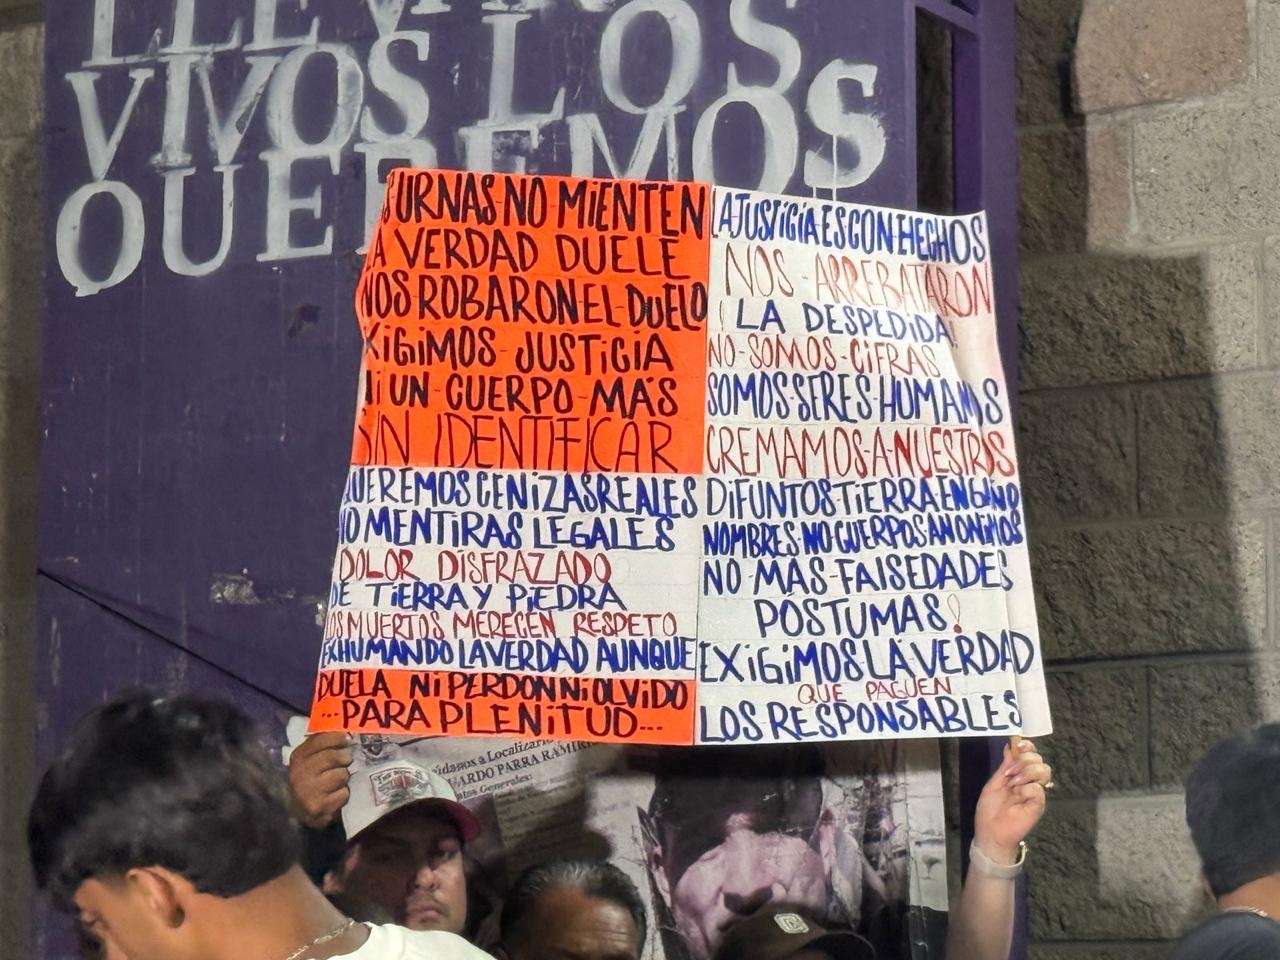 VIVOS LOS
QUEREMOS
URNAS NO MiENTEN
A VERDAD DUELE
NOS ROBARON EL DUELO
XIGiMOS JUSTiCiA
Ni UN CUERPO MÁS
SIN IDENTIFICAR
QUEREMOS CENiZAS REALES
NO MENTiRAS LEGALES
DOLOR DiSFRAZADO
DE TiERRA Y PiEDRA
LOS MUERTOS MERECEN RESPETO
EXHUMANDO LA VERDAD AUNQUE
DUELA Ni PERDON Ni OLVIDO
...PARA PLENiTUD...
LA JUSTiCiA ES CON HECHOS
NOS ARREBATARON
¡LA DESPEDIDA!
NO SOMOS CiFRAS
SOMOS SERES HUMANOS
CREMAMOS A NUESTROS
DiFUNTOS TiERRA ENGAÑO
NOMBRES NO CUERPOS ANONiMOS
NO MAS FAlSEDADES
POSTUMAS!
EXiGiMOS LA VERDAD
QUE PAGUEN
LOS RESPONSABLES
a Localizar
ARDO PARRA RAMIR
Generales: